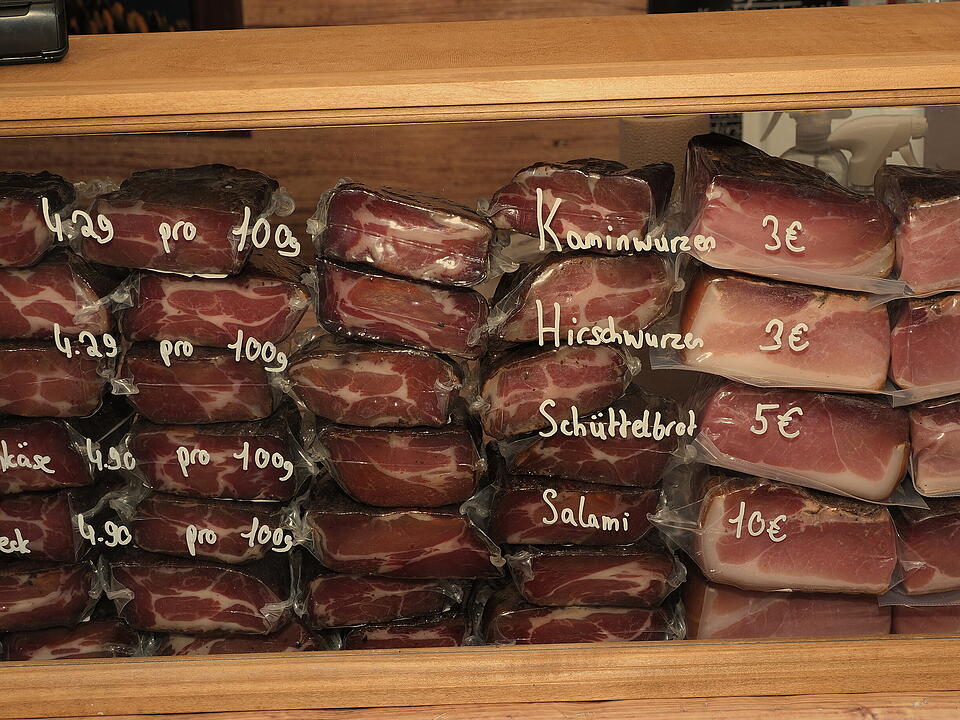 4.29 pro 100g
4.29 pro 100g
käse 4.90 pro 100g
eck 4.90 pro 100g
Kaminwurzen 3€
Hirschwurzen 3€
Schüttelbrot 5€
Salami 10€